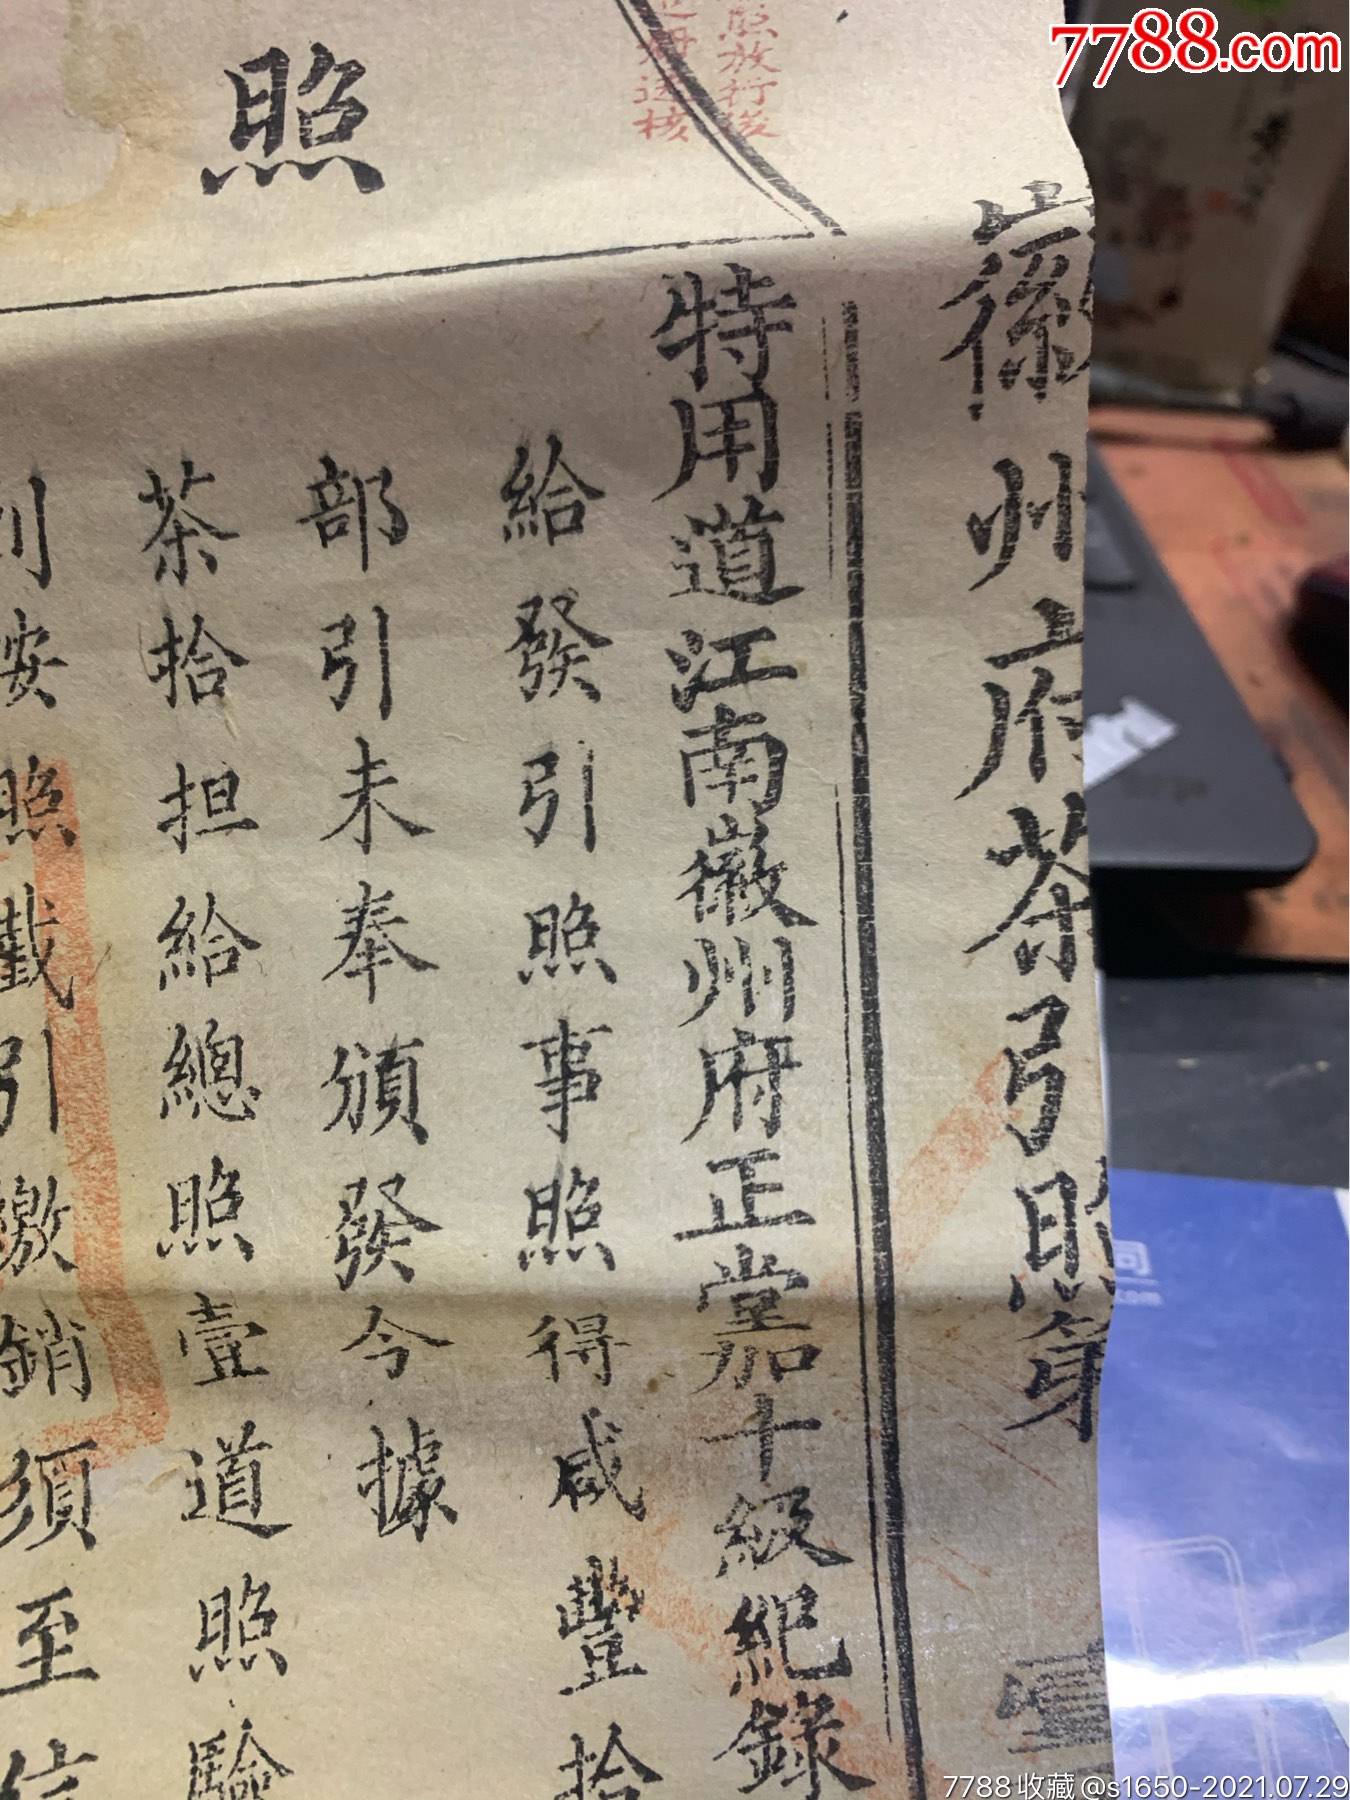 7788.com
照
照放行後
送核
徽州府茶引照第
特用道江南徽州府正堂加十級紀錄
給發引照事照得咸豐拾
部引未奉頒發今據
茶拾担給總照壹道照驗
安照截引繳銷須至
7788收藏@s1650-2021.07.29